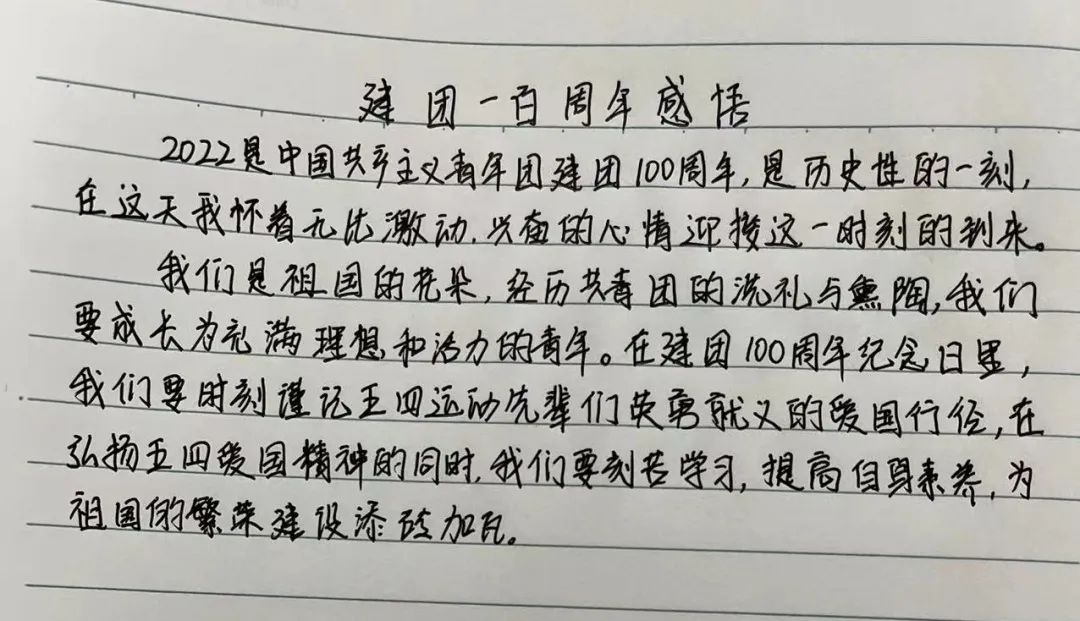 建团一百周年感悟
2022是中国共产主义青年团建团100周年,是历史性的一刻,
在这天我怀着无比激动、兴奋的心情迎接这一时刻的到来。
我们是祖国的花朵,经历共青团的洗礼与熏陶,我们
要成长为充满理想和活力的青年。在建团100周年纪念日里,
我们要时刻谨记五四运动先辈们英勇就义的爱国行径,在
弘扬五四爱国精神的同时,我们要刻苦学习,提高自身素养,为
祖国的繁荣建设添砖加瓦。